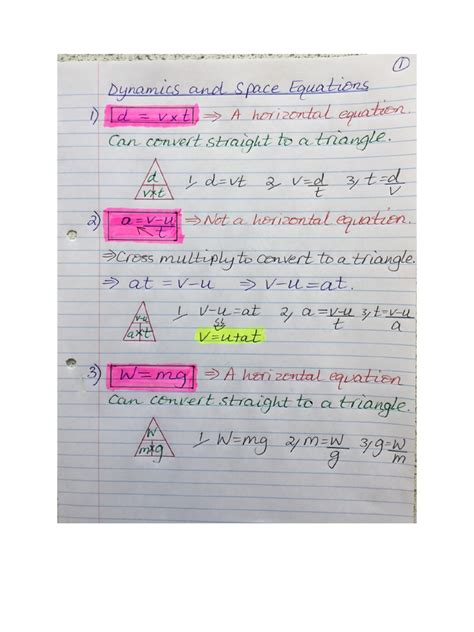 ①
Dynamics and Space Equations
1) d = v×t ⇒ A horizontal equation.
Can convert straight to a triangle.
d
v×t
1, d=vt 2, v=d/t 3, t=d/v
2) a=v-u/t ⇒ Not a horizontal equation.
⇒Cross multiply to convert to a triangle.
⇒ at = v-u ⇒ v-u=at.
v-u
a×t
1, v-u=at 2, a=v-u/t 3, t=v-u/a
V=u+at
3) W=mg ⇒ A horizontal equation
Can convert straight to a triangle.
W
m×g
1, W=mg 2, m=W/g 3, g=W/m